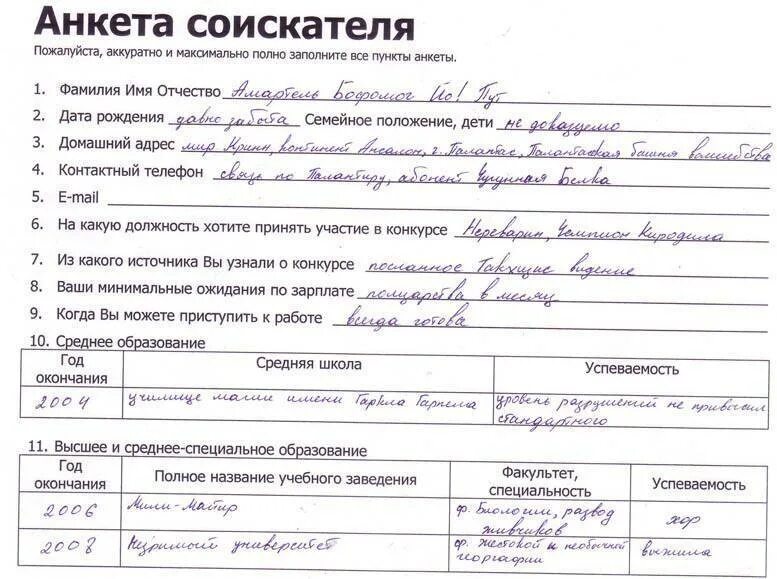 Анкета соискателя
Пожалуйста, аккуратно и максимально полно заполните все пункты анкеты.
1. Фамилия Имя Отчество Амартель Бофомог Йо! Пут
2. Дата рождения давно забыта Семейное положение, дети не доказуемо
3. Домашний адрес мир Кринн, континент Ансалон, г. Палантас, Палантасская башня волшебства
4. Контактный телефон связь по Палантиру, абонент Чугунная Белка
5. E-mail
6. На какую должность хотите принять участие в конкурсе Нереварин, Чемпион Киродила
7. Из какого источника Вы узнали о конкурсе посланное Такхщис видение
8. Ваши минимальные ожидания по зарплате полцарства в месяц
9. Когда Вы можете приступить к работе всегда готова
10. Среднее образование
Год окончания Средняя школа Успеваемость
2004 училище магии имени Гаркла Гарпелла уровень разрушений не превысил стандартного
11. Высшее и среднее-специальное образование
Год окончания Полное название учебного заведения Факультет, специальность Успеваемость
2006 Мили-Магир ф. Биологии, развод живчиков хор
2008 Незримый университет ф. жестокой и необычной географии выжила